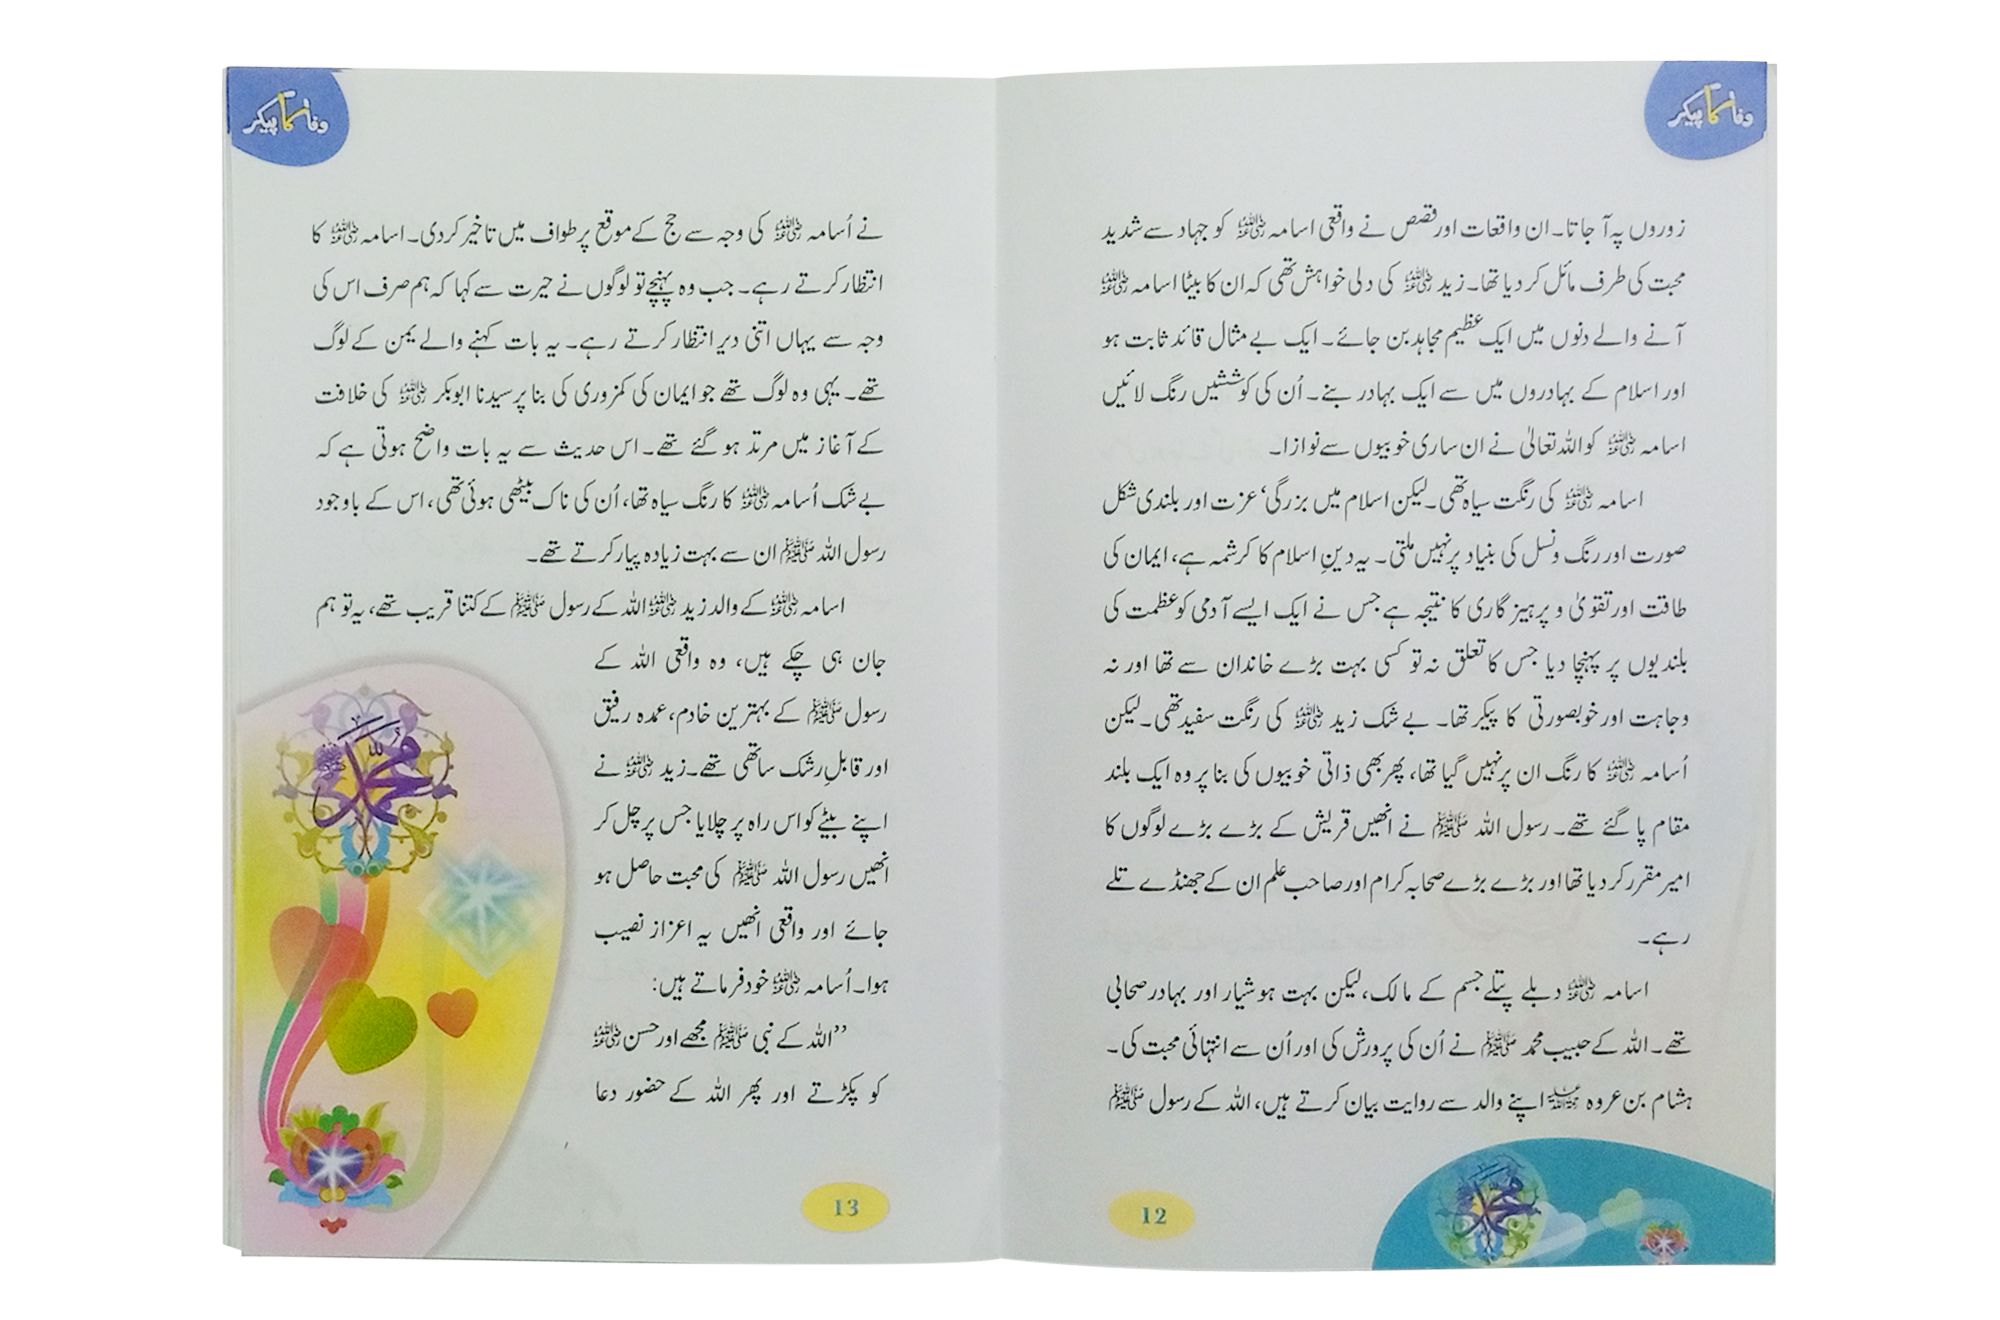 وفا کا پیکر
زوروں پہ آ جاتا۔ ان واقعات اور قصص نے واقعی اسامہ رضی اللہ عنہ کو جہاد سے شدید
محبت کی طرف مائل کر دیا تھا۔ زید رضی اللہ عنہ کی دلی خواہش تھی کہ ان کا بیٹا اسامہ رضی اللہ عنہ
آنے والے دنوں میں ایک عظیم مجاہد بن جائے۔ ایک بے مثال قائد ثابت ہو
اور اسلام کے بہادروں میں سے ایک بہادر بنے۔ اُن کی کوششیں رنگ لائیں
اسامہ رضی اللہ عنہ کو اللہ تعالیٰ نے ان ساری خوبیوں سے نوازا۔
اسامہ رضی اللہ عنہ کی رنگت سیاہ تھی۔ لیکن اسلام میں بزرگی، عزت اور بلندی شکل
صورت اور رنگ و نسل کی بنیاد پر نہیں ملتی۔ یہ دینِ اسلام کا کرشمہ ہے، ایمان کی
طاقت اور تقویٰ و پرہیز گاری کا نتیجہ ہے جس نے ایک ایسے آدمی کو عظمت کی
بلندیوں پر پہنچا دیا جس کا تعلق نہ تو کسی بہت بڑے خاندان سے تھا اور نہ
وجاہت اور خوبصورتی کا پیکر تھا۔ بے شک زید رضی اللہ عنہ کی رنگت سفید تھی۔ لیکن
اُسامہ رضی اللہ عنہ کا رنگ ان پر نہیں گیا تھا، پھر بھی ذاتی خوبیوں کی بنا پر وہ ایک بلند
مقام پا گئے تھے۔ رسول اللہ ﷺ نے انھیں قریش کے بڑے بڑے لوگوں کا
امیر مقرر کر دیا تھا اور بڑے بڑے صحابہ کرام اور صاحب علم ان کے جھنڈے تلے
رہے۔
اسامہ رضی اللہ عنہ دبلے پتلے جسم کے مالک، لیکن بہت ہوشیار اور بہادر صحابی
تھے۔ اللہ کے حبیب محمد ﷺ نے اُن کی پرورش کی اور اُن سے انتہائی محبت کی۔
ہشام بن عروہ رحمۃ اللہ علیہ اپنے والد سے روایت بیان کرتے ہیں، اللہ کے رسول ﷺ
محمد
12
وفا کا پیکر
نے اُسامہ رضی اللہ عنہ کی وجہ سے حج کے موقع پر طواف میں تاخیر کر دی۔ اسامہ رضی اللہ عنہ کا
انتظار کرتے رہے۔ جب وہ پہنچے تو لوگوں نے حیرت سے کہا کہ ہم صرف اس کی
وجہ سے یہاں اتنی دیر انتظار کرتے رہے۔ یہ بات کہنے والے یمن کے لوگ
تھے۔ یہی وہ لوگ تھے جو ایمان کی کمزوری کی بنا پر سیدنا ابوبکر رضی اللہ عنہ کی خلافت
کے آغاز میں مرتد ہو گئے تھے۔ اس حدیث سے یہ بات واضح ہوتی ہے کہ
بے شک اُسامہ رضی اللہ عنہ کا رنگ سیاہ تھا، اُن کی ناک بیٹھی ہوئی تھی، اس کے باوجود
رسول اللہ ﷺ ان سے بہت زیادہ پیار کرتے تھے۔
اسامہ رضی اللہ عنہ کے والد زید رضی اللہ عنہ اللہ کے رسول ﷺ کے کتنا قریب تھے، یہ تو ہم
جان ہی چکے ہیں، وہ واقعی اللہ کے
رسول ﷺ کے بہترین خادم، عمدہ رفیق
اور قابلِ رشک ساتھی تھے۔ زید رضی اللہ عنہ نے
اپنے بیٹے کو اس راہ پر چلایا جس پر چل کر
انھیں رسول اللہ ﷺ کی محبت حاصل ہو
جائے اور واقعی انھیں یہ اعزاز نصیب
ہوا۔ اُسامہ رضی اللہ عنہ خود فرماتے ہیں:
”اللہ کے نبی ﷺ مجھے اور حسن رضی اللہ عنہ
کو پکڑتے اور پھر اللہ کے حضور دعا
محمد ﷺ
13